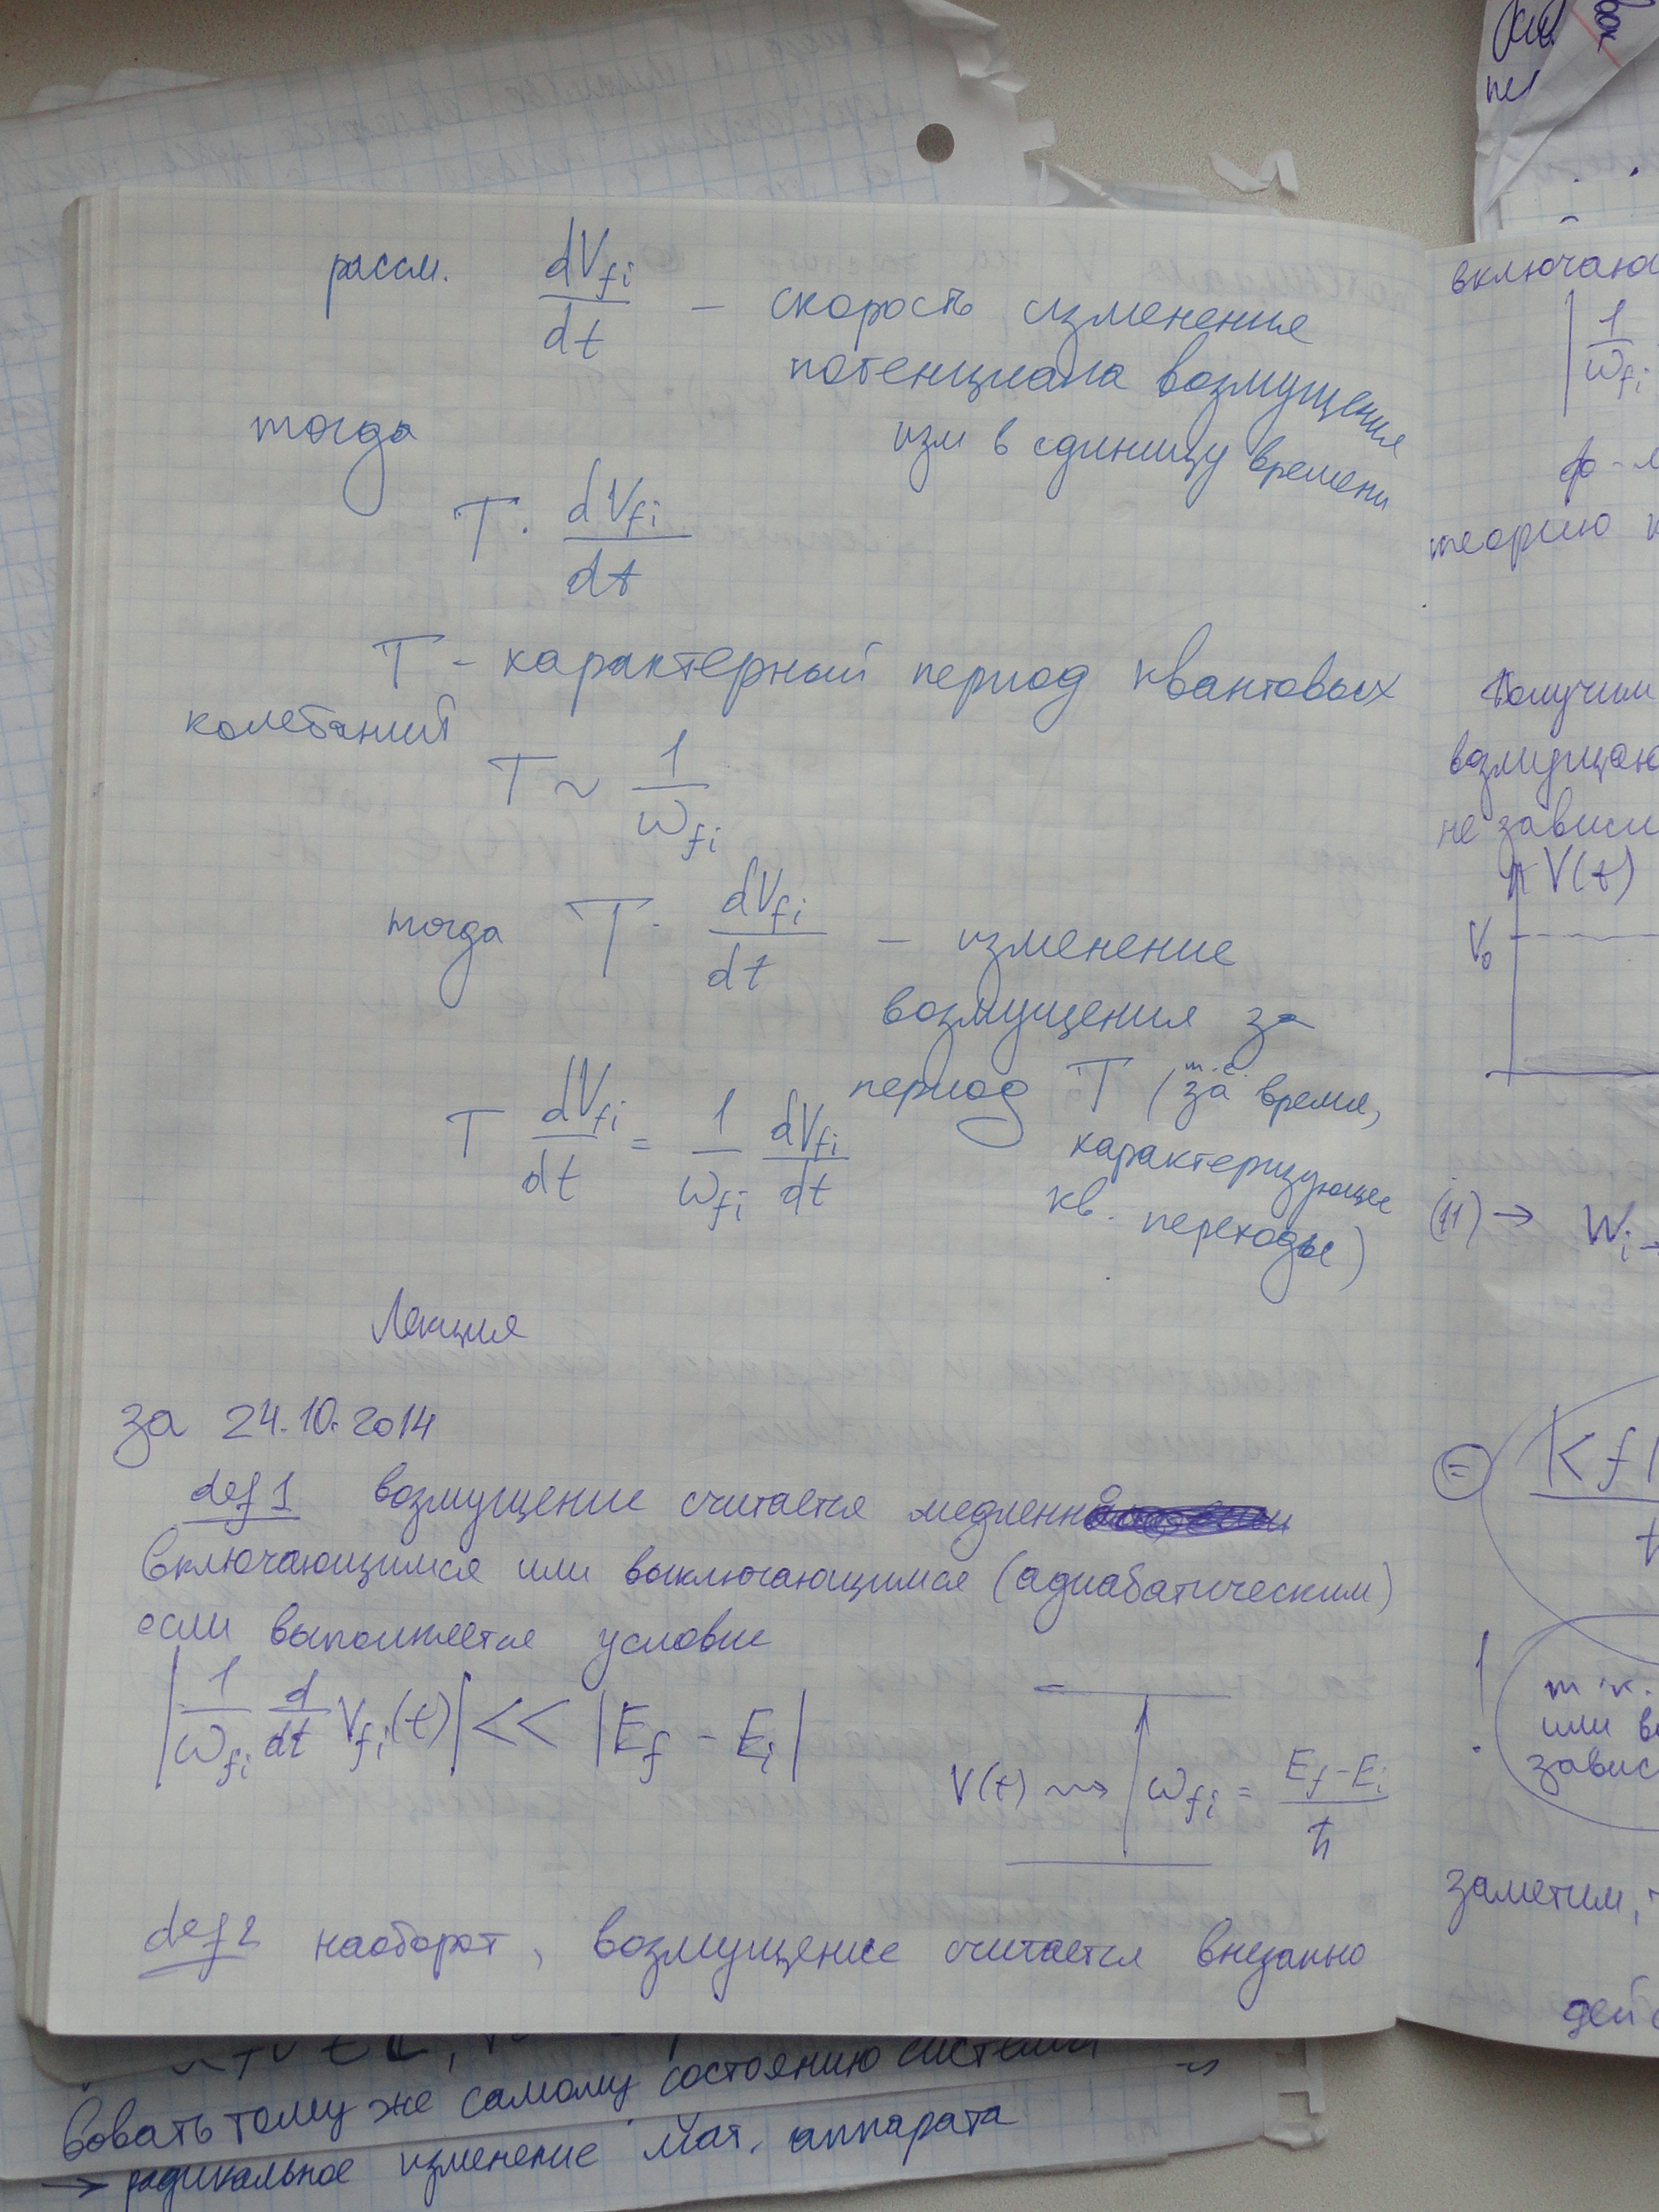 рассм. dV_fi/dt – скорость изменения
потенциала возмущения
изм в единицу времени
тогда
T · dV_fi/dt
T – характерный период квантовых
колебаний
T ~ 1/ω_fi
тогда T · dV_fi/dt – изменение
возмущения за
период T (т.е. за время,
характеризующее
кв. переходы)
T dV_fi/dt = 1/ω_fi dV_fi/dt
Лекция
за 24.10.2014
def 1 возмущение считается медленно
включающимся или выключающимся (адиабатическим)
если выполняется условие
|1/ω_fi d/dt V_fi(t)| << |E_f - E_i|
V(t) ⇝ ω_fi = E_f - E_i/ħ
def 2 наоборот, возмущение считается внезапно
включаю
|1/ω_fi
ф-л
теорию к
Получим
возмущаю
не зависи
V(t)
V₀
(11) → W_i→
=
<f|
т.к.
или в
завис
!
заметим,
дей
вовать тому же самому состоянию системы
→ радикальное изменение мат. аппарата